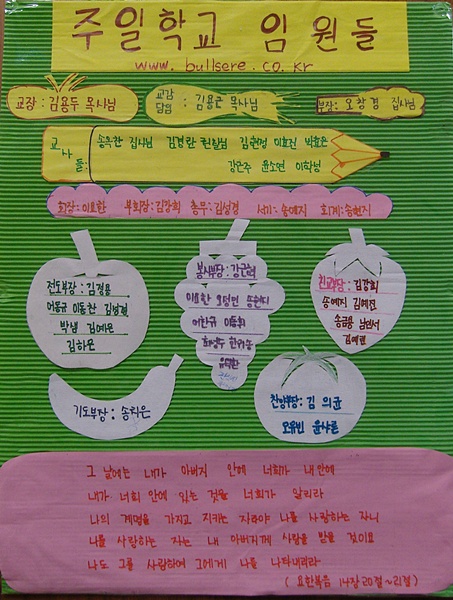 주일학교 임원들
www.bullsere.co.kr
교장 : 김용두 목사님
교감 담임 : 김용균 목사님
부장 : 오창경 집사님
교사들 : 송옥한 집사님 김경란 권찰님 김현정 이효진 박효은
강은주 윤소연 이학성
회장 : 이요한 부회장 : 김강희 총무 : 김성경 서기 : 송예지 회계 : 송현지
전도부장 : 김경용
어동규 이동찬 김성결
박샘 김예은
김하은
봉사부장 : 강근혁
이요한 오정민 송현지
이창규 이동휘
한기승
친교부장 : 김강희
송예지 김예진
송금용 남민서
김예림
기도부장 : 송직은
찬양부장 : 김의균
오유빈 윤샤론
그 날에는 내가 아버지 안에 너희가 내 안에
내가 너희 안에 있는 것을 너희가 알리라
나의 계명을 가지고 지키는 자라야 나를 사랑하는 자니
나를 사랑하는 자는 내 아버지께 사랑을 받을 것이요
나도 그를 사랑하여 그에게 나를 나타내리라
( 요한복음 14장 20절~21절 )